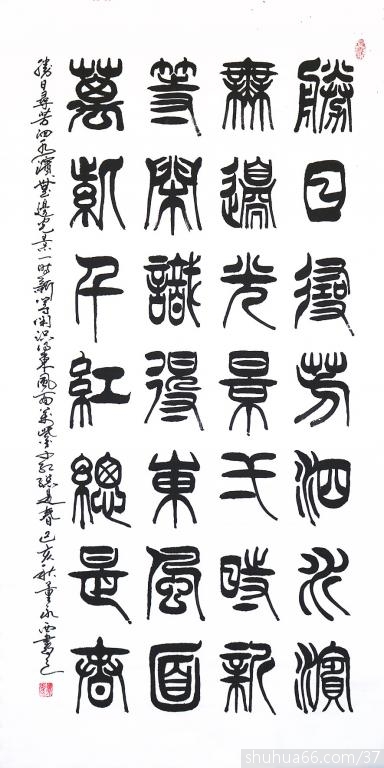 勝日尋芳泗水濱
無邊光景弌時新
等閑識得東風面
萬紫千紅總是春
勝日尋芳泗水濱無邊光景一時新等閑识得東風面萬紫千紅總是春己亥秋董永西書
shuhua66.com/37